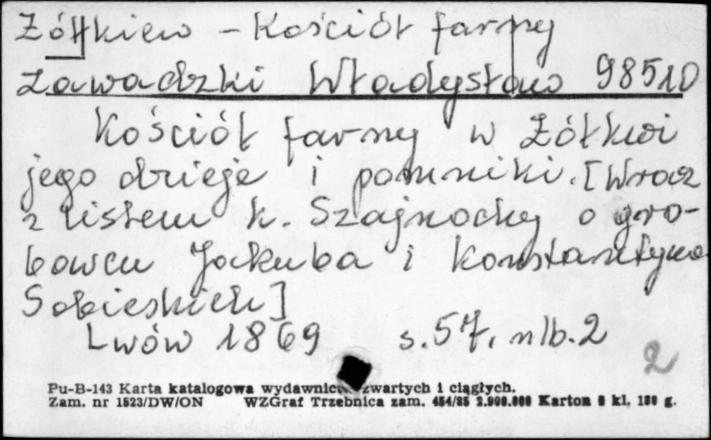 Żółkiew - Kościół farny
Zawadzki Władysław 98510
Kościół farny w Żółkwi
jego dzieje i pomniki. [Wraz
z listem K. Szajnochy o gro-
bowcu Jakuba i Konstantyna
Sobieskich]
Lwów 1869 s. 57, nlb. 2
2
Pu-B-143 Karta katalogowa wydawnictw zwartych i ciągłych.
Zam. nr 1523/DW/ON WZGraf Trzebnica zam. 454/85 2.000.000 Karton kl. 180 g.